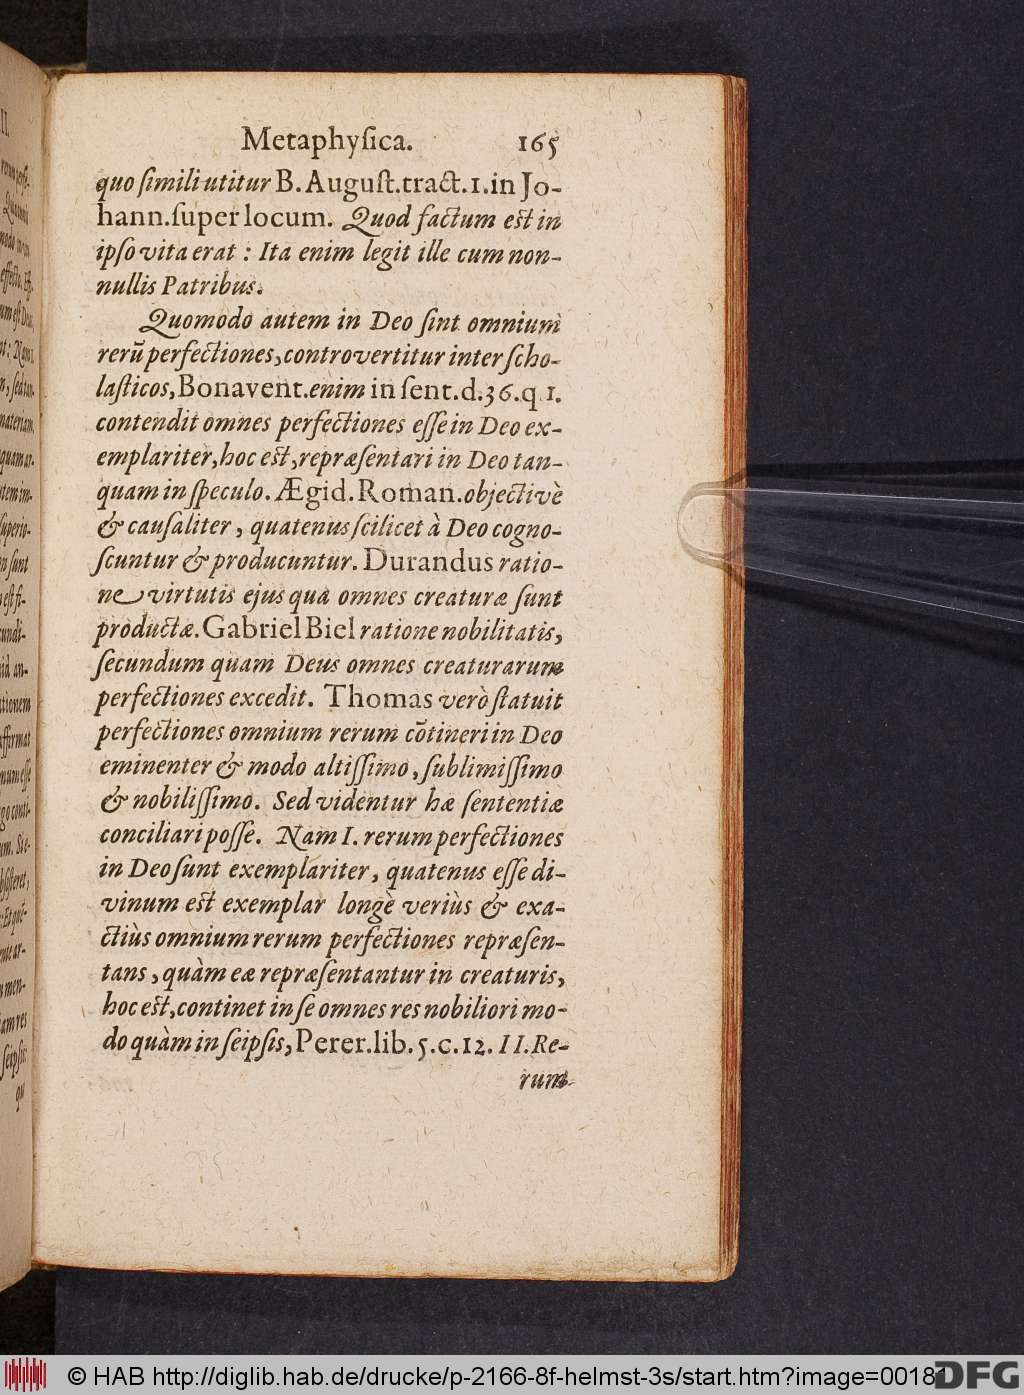 Metaphyſica. 165
quo ſimili utitur B. Auguſt. tract. 1. in Jo-
hann. ſuper locum. Quod factum est in
ipſo vita erat : Ita enim legit ille cum non-
nullis Patribus.
Quomodo autem in Deo ſint omnium
rerū perfectiones, controvertitur inter ſcho-
laſticos, Bonavent. enim in ſent. d. 36. q 1.
contendit omnes perfectiones eſſe in Deo ex-
emplariter, hoc est, repræſentari in Deo tan-
quam in ſpeculo. Ægid. Roman. objectivè
& cauſaliter, quatenus ſcilicet à Deo cogno-
ſcuntur & producuntur. Durandus ratio-
ne virtutis ejus qua omnes creaturæ ſunt
productæ. Gabriel Biel ratione nobilitatis,
ſecundum quam Deus omnes creaturarum
perfectiones excedit. Thomas verò ſtatuit
perfectiones omnium rerum cōtineri in Deo
eminenter & modo altiſſimo, ſublimiſſimo
& nobiliſſimo. Sed videntur hæ ſententiæ
conciliari poſſe. Nam I. rerum perfectiones
in Deo ſunt exemplariter, quatenus eſſe di-
vinum est exemplar longè veriùs & exa-
ctiùs omnium rerum perfectiones repræſen-
tans, quàm eæ repræſentantur in creaturis,
hoc est, continet in ſe omnes res nobiliori mo-
do quàm in ſeipſis, Perer. lib. 5. c. 12. II. Re-
rum
© HAB http://diglib.hab.de/drucke/p-2166-8f-helmst-3s/start.htm?image=00181
DFG